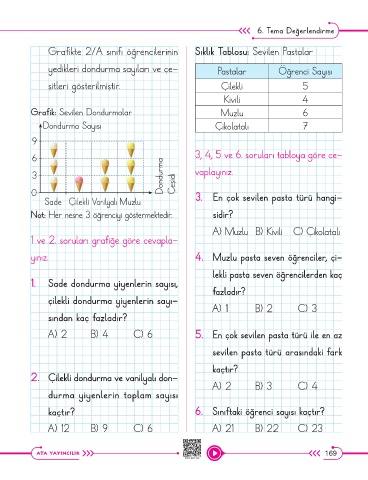 6. Tema Değerlendirme
Grafikte 2/A sınıfı öğrencilerinin
yedikleri dondurma sayıları ve çe-
şitleri gösterilmiştir.
Grafik: Sevilen Dondurmalar
Dondurma Sayısı
9
6
3
0
Dondurma
Çeşidi
Sade Çilekli Vanilyalı Muzlu
Not: Her nesne 3 öğrenciyi göstermektedir.
1 ve 2. soruları grafiğe göre cevapla-
yınız.
1. Sade dondurma yiyenlerin sayısı,
çilekli dondurma yiyenlerin sayı-
sından kaç fazladır?
A) 2 B) 4 C) 6
2. Çilekli dondurma ve vanilyalı don-
durma yiyenlerin toplam sayısı
kaçtır?
A) 12 B) 9 C) 6
Sıklık Tablosu: Sevilen Pastalar
Pastalar Öğrenci Sayısı
Çilekli 5
Kivili 4
Muzlu 6
Çikolatalı 7
3, 4, 5 ve 6. soruları tabloya göre ce-
vaplayınız.
3. En çok sevilen pasta türü hangi-
sidir?
A) Muzlu B) Kivili C) Çikolatalı
4. Muzlu pasta seven öğrenciler, çi-
lekli pasta seven öğrencilerden kaç
fazladır?
A) 1 B) 2 C) 3
5. En çok sevilen pasta türü ile en az
sevilen pasta türü arasındaki fark
kaçtır?
A) 2 B) 3 C) 4
6. Sınıftaki öğrenci sayısı kaçtır?
A) 21 B) 22 C) 23
ATA YAYINCILIK
169